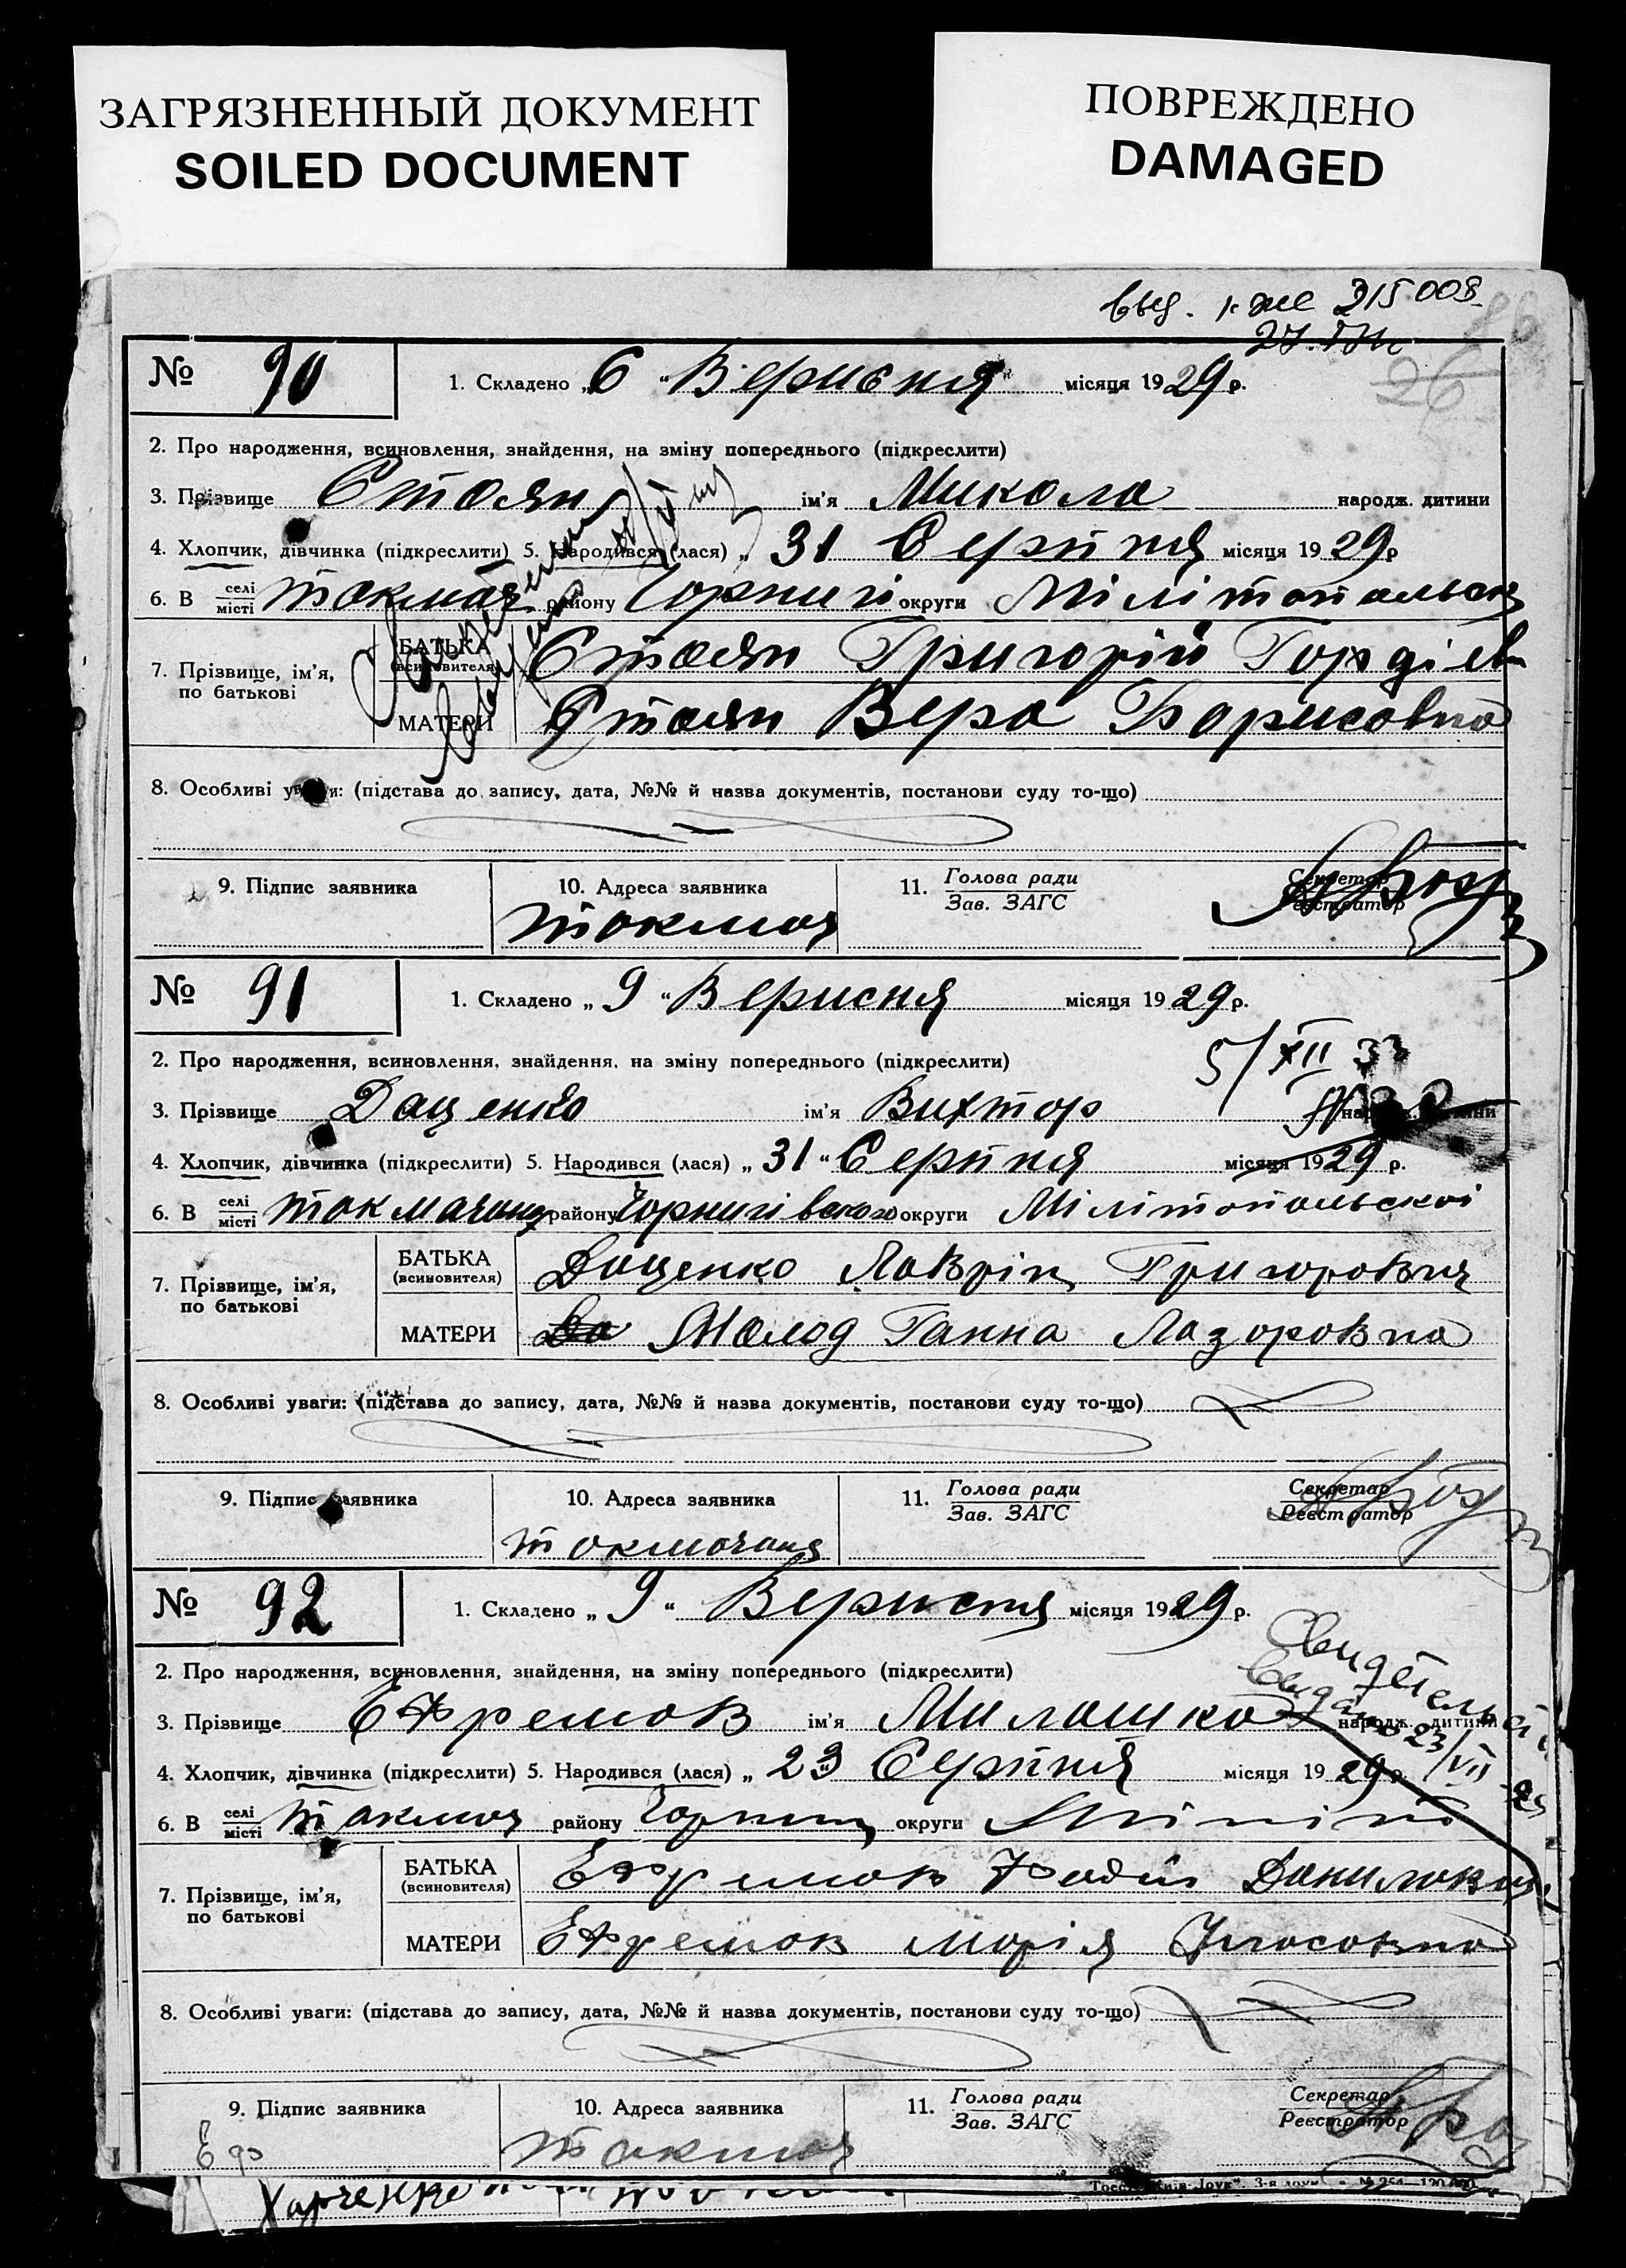 ЗАГРЯЗНЕННЫЙ ДОКУМЕНТ
SOILED DOCUMENT
ПОВРЕЖДЕНО
DAMAGED
215008
26
№ 90 1. Складено „6“ Вериєня місяця 1929 р.
2. Про народження, всиновлення, знайдення, на зміну попереднього (підкреслити)
3. Прізвище Стоян ім'я Микола народж. дитини
4. Хлопчик, дівчинка (підкреслити) 5. Народився (лася) „31 Серпня місяця 1929 р
6. В селі місті Токмач району Чорниги округи Мілітопольск
7. Прізвище, ім'я, по батькові
БАТЬКА (всиновителя) Стоян Григорій Гордієв
МАТЕРИ Стоян Вера Борисовна
8. Особливі уваги: (підстава до запису, дата, №№ й назва документів, постанови суду то-що)
9. Підпис заявника 10. Адреса заявника 11. Голова ради Зав. ЗАГС Секретар Реєстратор
Токмач
№ 91 1. Складено „9“ Верисня місяця 1929 р.
2. Про народження, всиновлення, знайдення, на зміну попереднього (підкреслити)
5/XII 33
3. Прізвище Доценко ім'я Вихтор народж. дитини
4. Хлопчик, дівчинка (підкреслити) 5. Народився (лася) „31“ Серпня місяця 1929 р.
6. В селі місті Токмачанц району Чорнигівского округи Мілітопольскоі
7. Прізвище, ім'я, по батькові
БАТЬКА (всиновителя) Доценко Лаврін Григорович
МАТЕРИ Молод Ганна Лазоровна
8. Особливі уваги: (підстава до запису, дата, №№ й назва документів, постанови суду то-що)
9. Підпис заявника 10. Адреса заявника 11. Голова ради Зав. ЗАГС Секретар Реєстратор
Токмачанц
№ 92 1. Складено „9“ Верисня місяця 1929 р.
2. Про народження, всиновлення, знайдення, на зміну попереднього (підкреслити)
3. Прізвище Ефремов ім'я Милошка народж. дитини
4. Хлопчик, дівчинка (підкреслити) 5. Народився (лася) „23“ Серпня місяця 1929 р.
23/VII
6. В селі місті Токмач району Чорниг округи Мілітο
7. Прізвище, ім'я, по батькові
БАТЬКА (всиновителя) Ефремов Данилович
МАТЕРИ Ефремов Марія Власовна
8. Особливі уваги: (підстава до запису, дата, №№ й назва документів, постанови суду то-що)
9. Підпис заявника 10. Адреса заявника 11. Голова ради Зав. ЗАГС Секретар Реєстратор
Еф Токмач
Харченко